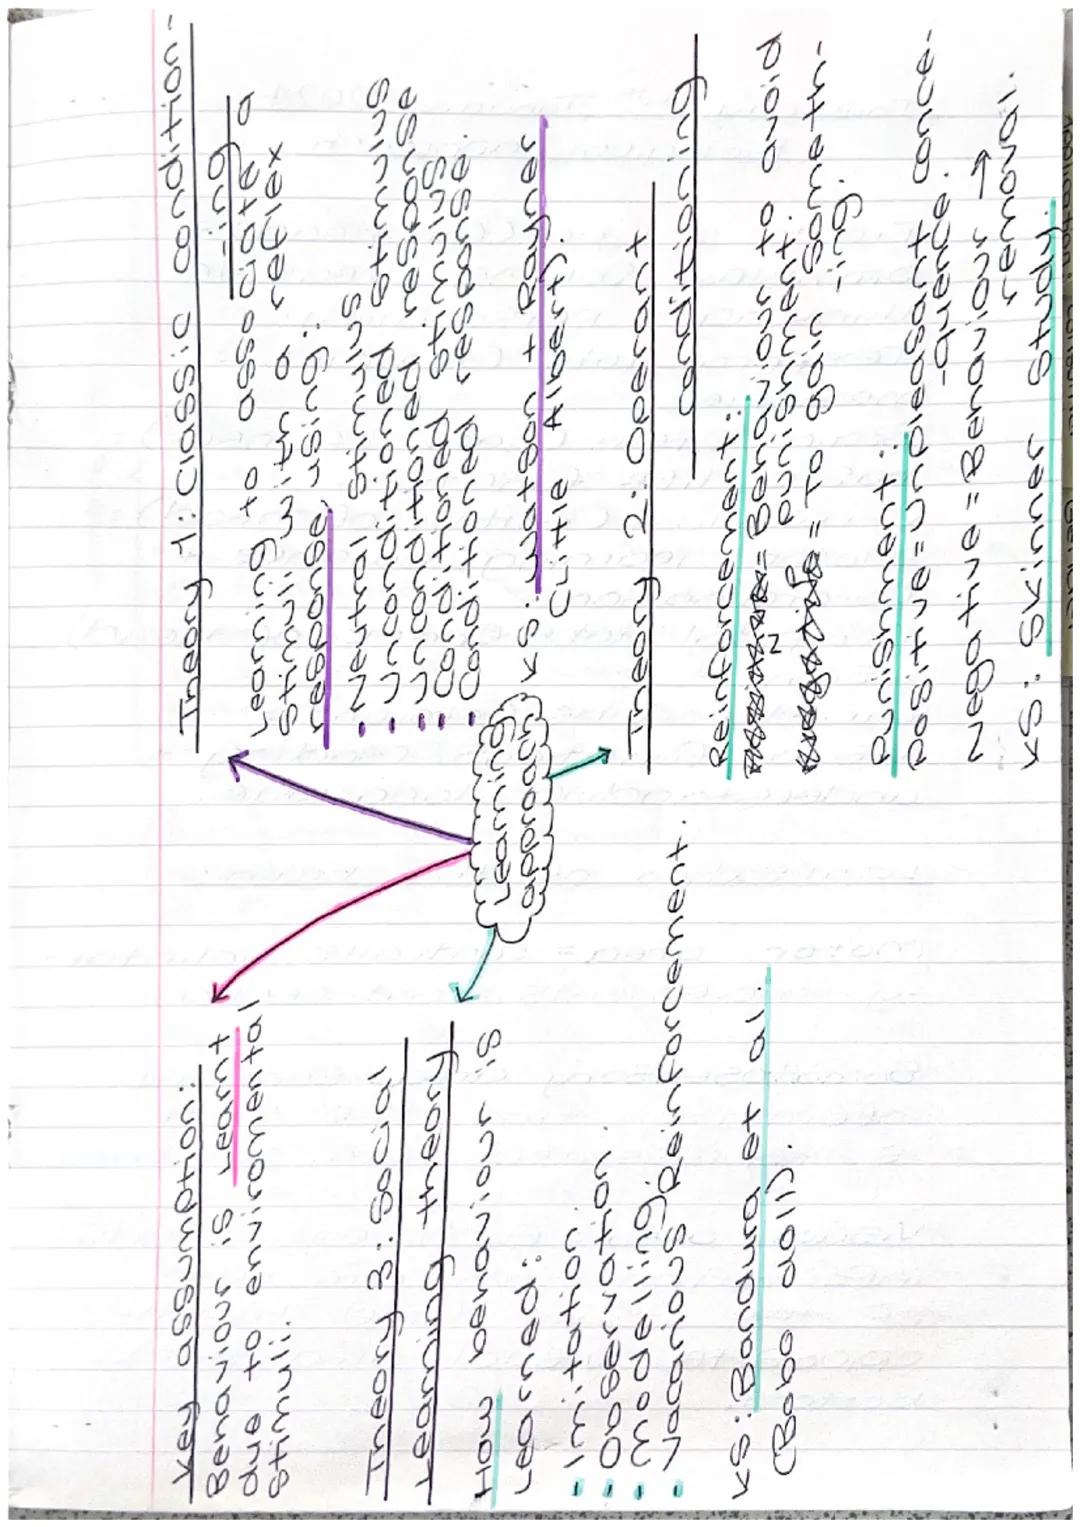 Key assumption:
Behaviour is learnt
due to enviromental
stimuli.
Theory 1: Classic condition-
-ing
Learning to associate a
stimuli with a reflex
response, using:
- Neutral stimulus
- Unconditioned stimulus
- Unconditioned response
- Conditioned stimulus
- Conditioned response.
KS: Watson + Rayner
(Little Albert).
Learning
approach
Theory 2: Operant
conditioning
Reinforcement:
= Behaviour to avoid
N punishment.
= To gain someth-
-ing.
Punishment:
Positive = unpleasant conce-
-quence.
Negative = Behaviour →
removal.
KS: Skinner study.
Theory 3: Social
Learning theory
How behaviour is
learned:
- Imitation.
- Observation.
- modelling.
- Vacarious Reinforcement.
KS: Bandura et al.
(Bobo doll).